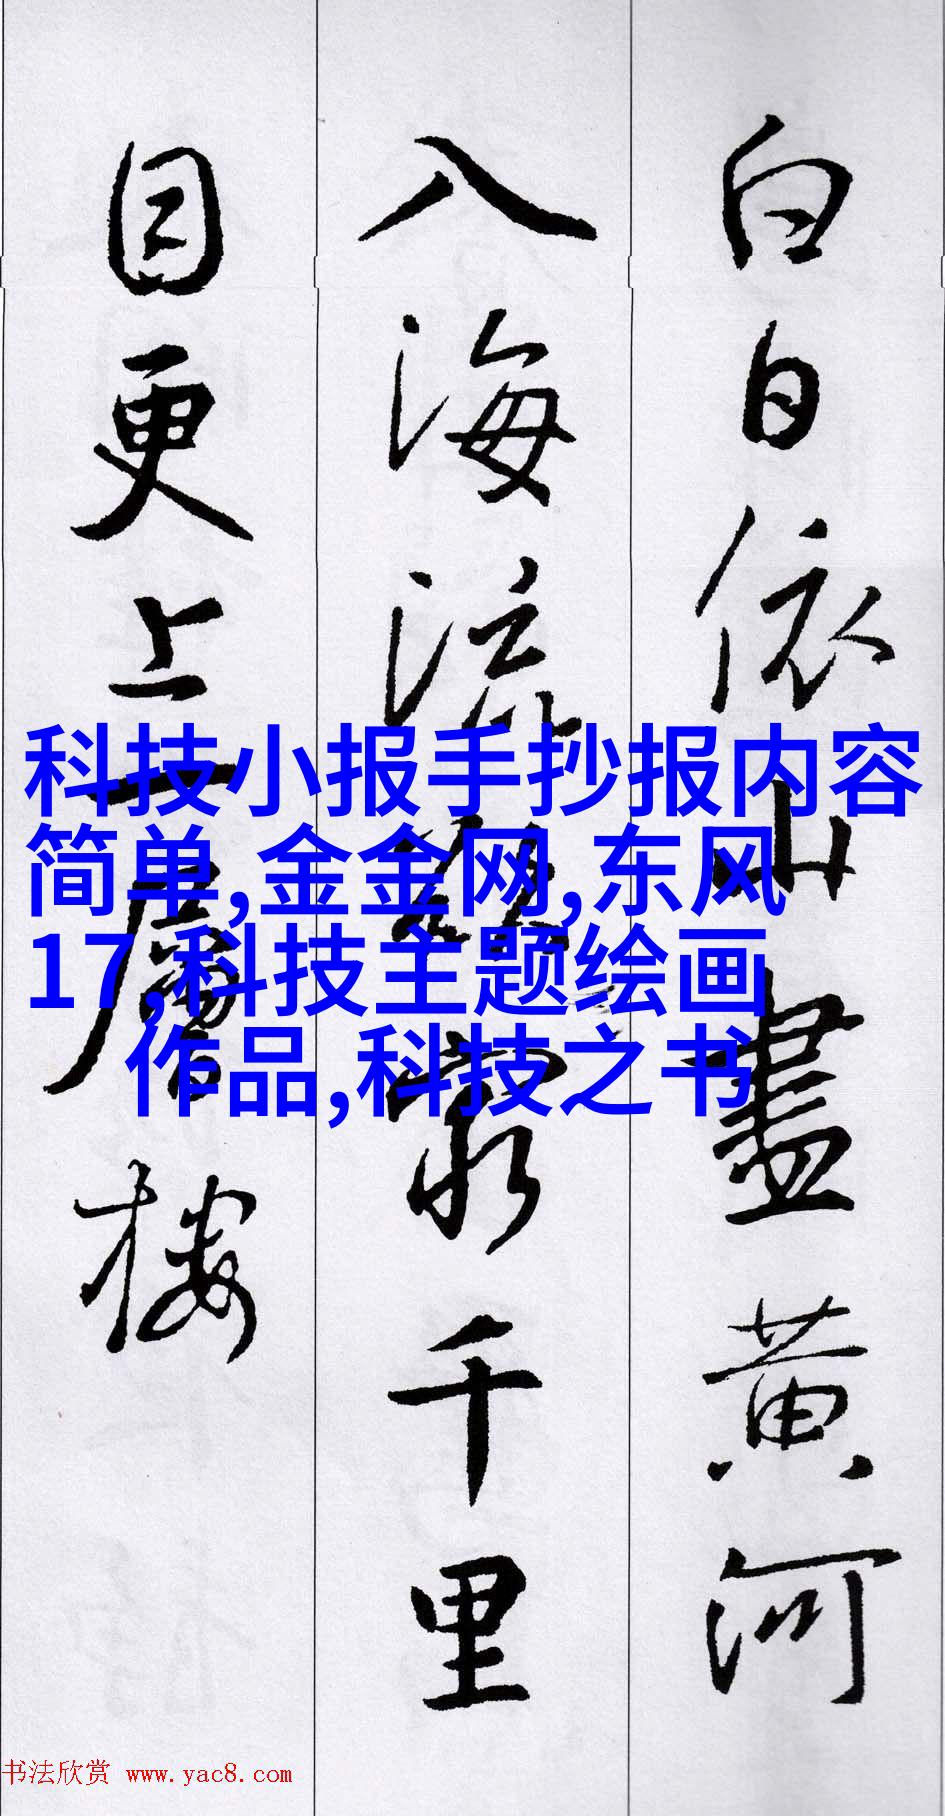 白日依山盡黄河
入海流欲窮千里
目更上一層樓
科技小报手抄报内容
简单,金金网,东风
17,科技主题绘画
作品,科技之书
书法欣赏 www.yac8.com